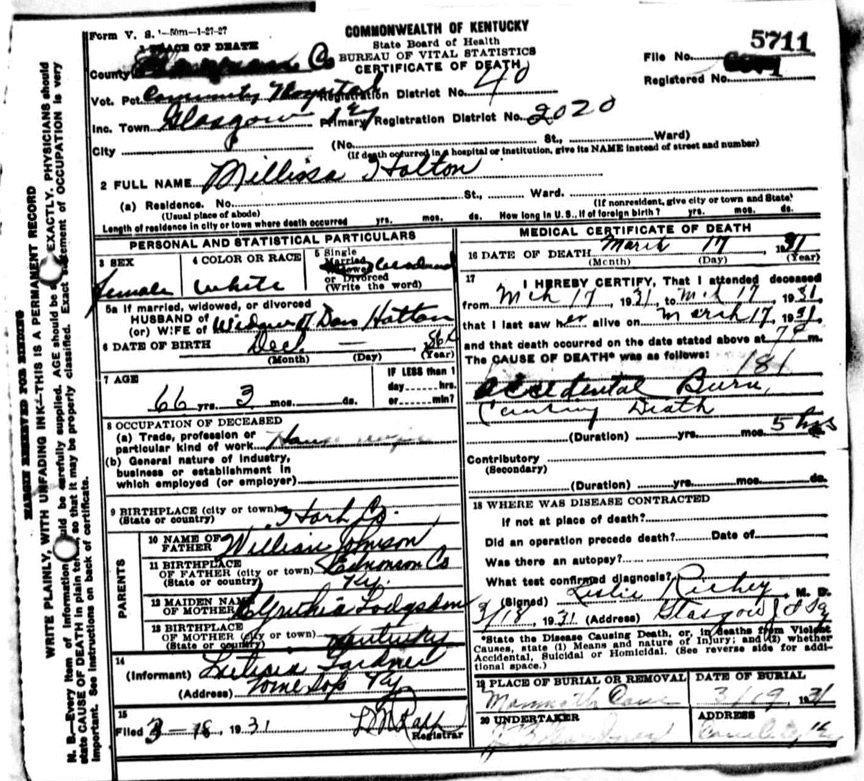 Form V. S. 1-50m-1-27-27
COMMONWEALTH OF KENTUCKY
State Board of Health
BUREAU OF VITAL STATISTICS
CERTIFICATE OF DEATH
5711
File No.
Registered No.
1 PLACE OF DEATH
County Co
Vot. Pct. Community Hospital Registration District No. 40
Inc. Town Glasgow Ky Primary Registration District No. 2020
City (No. St., Ward)
(If death occurred in a hospital or institution, give its NAME instead of street and number)
2 FULL NAME Millissa Holton
(a) Residence. No. St., Ward.
(Usual place of abode) (If nonresident, give city or town and State)
Length of residence in city or town where death occurred yrs. mos. ds. How long in U. S., if of foreign birth? yrs. mos. ds.
PERSONAL AND STATISTICAL PARTICULARS
3 SEX
female
4 COLOR OR RACE
White
5 Single
Married
Widowed
or Divorced
(Write the word)
5a If married, widowed, or divorced
HUSBAND of
(or) WIFE of Widow of Hatton
6 DATE OF BIRTH Dec
(Month) (Day) (Year)
7 AGE
66 yrs. 3 mos. ds.
IF LESS than 1
day hrs.
or min?
8 OCCUPATION OF DECEASED
(a) Trade, profession or
particular kind of work House
(b) General nature of industry,
business or establishment in
which employed (or employer)
9 BIRTHPLACE (city or town)
(State or country) Hart Co.
PARENTS
10 NAME OF
FATHER William Johnson
11 BIRTHPLACE
OF FATHER (city or town) Edmonson Co
(State or country) Ky.
12 MAIDEN NAME
OF MOTHER Cynthia
13 BIRTHPLACE
OF MOTHER (city or town)
(State or country) Kentucky
14
(Informant) Gardner
(Address) Ky
15
Filed 3-18, 1931
Registrar
MEDICAL CERTIFICATE OF DEATH
16 DATE OF DEATH March 17 1931
(Month) (Day) (Year)
17
I HEREBY CERTIFY, That I attended deceased
from Mch 17, 1931, to Mch 17, 1931,
that I last saw her alive on March 17, 1931,
and that death occurred on the date stated above at 7 P m.
The CAUSE OF DEATH* was as follows:
181
accidental Burn,
Causing Death
(Duration) yrs. mos. 5 hrs ds.
Contributory
(Secondary)
(Duration) yrs. mos. ds.
18 WHERE WAS DISEASE CONTRACTED
If not at place of death?
Did an operation precede death? Date of
Was there an autopsy?
What test confirmed diagnosis?
(Signed) Leslie Richey M. D.
3/18, 1931 (Address) Glasgow
*State the Disease Causing Death, or, in deaths from Violent
Causes, state (1) Means and nature of Injury; and (2) whether
Accidental, Suicidal or Homicidal. (See reverse side for addi-
tional space.)
19 PLACE OF BURIAL OR REMOVAL
Mammoth Cave
DATE OF BURIAL
3/19 1931
20 UNDERTAKER
ADDRESS
Cave City Ky
MARGIN RESERVED FOR BINDING
WRITE PLAINLY, WITH UNFADING INK—THIS IS A PERMANENT RECORD
N. B.—Every item of information should be carefully supplied. AGE should be EXACTLY. PHYSICIANS should
state CAUSE OF DEATH in plain terms, so that it may be properly classified. Exact statement of OCCUPATION is very
important. See instructions on back of certificate.